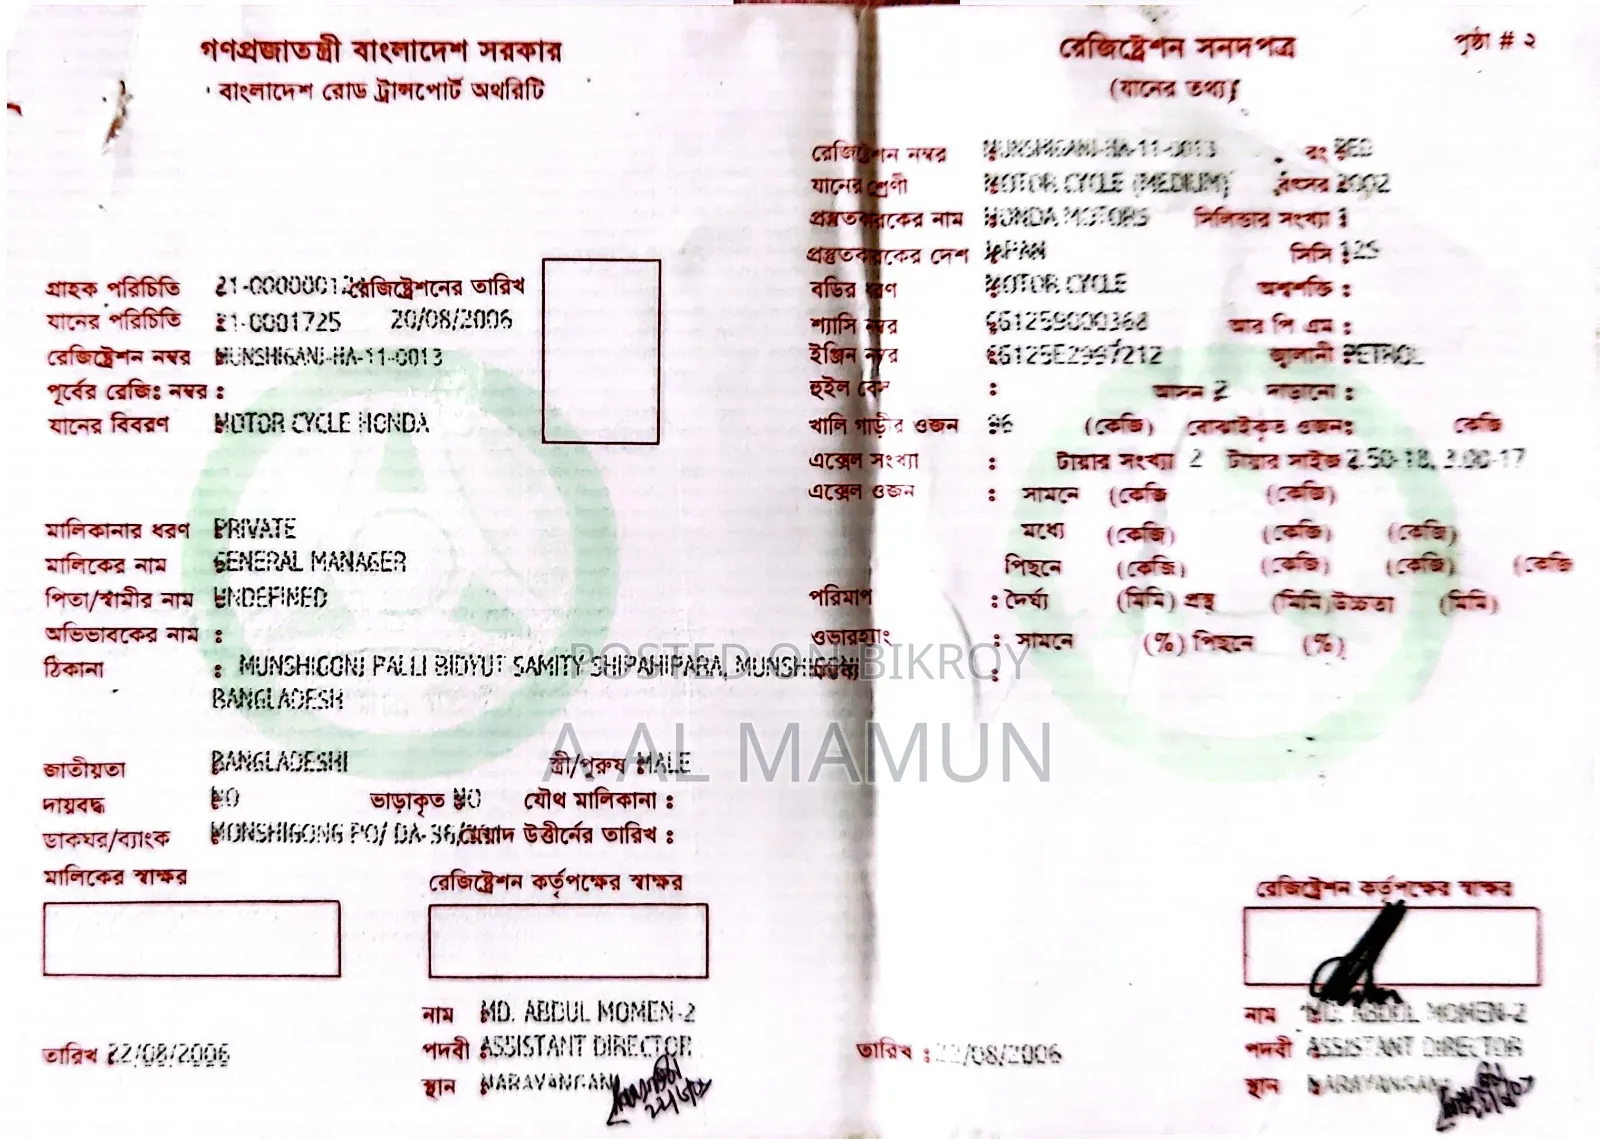 গণপ্রজাতন্ত্রী বাংলাদেশ সরকার
বাংলাদেশ রোড ট্রান্সপোর্ট অথরিটি
গ্রাহক পরিচিতি 21-0000001 রেজিষ্ট্রেশনের তারিখ
যানের পরিচিতি 21-0001725 20/08/2006
রেজিষ্ট্রেশন নম্বর MUNSHIGANJ-HA-11-0013
পূর্বের রেজিঃ নম্বর :
যানের বিবরণ MOTOR CYCLE HONDA
মালিকানার ধরণ PRIVATE
মালিকের নাম GENERAL MANAGER
পিতা/স্বামীর নাম UNDEFINED
অভিভাবকের নাম :
ঠিকানা : MUNSHIGONJ PALLI BIDYUT SAMITY SHIPAHIPARA, MUNSHIGONJ
BANGLADESH
জাতীয়তা BANGLADESHI স্ত্রী/পুরুষ : MALE
দায়বদ্ধ NO ভাড়াকৃত NO যৌথ মালিকানা :
ডাকঘর/ব্যাংক MONSHIGONG PO/ DA-36/ মেয়াদ উত্তীর্নের তারিখ :
মালিকের স্বাক্ষর রেজিষ্ট্রেশন কর্তৃপক্ষের স্বাক্ষর
নাম MD. ABDUL MOMEN-2
তারিখ : 22/08/2006 পদবী : ASSISTANT DIRECTOR
স্থান : NARAYANGANJ
রেজিষ্ট্রেশন সনদপত্র পৃষ্ঠা # ২
(যানের তথ্য)
রেজিষ্ট্রেশন নম্বর MUNSHIGANJ-HA-11-0013 রং : RED
যানের শ্রেণী MOTOR CYCLE (MEDIUM) বৎসর 2002
প্রস্তুতকারকের নাম HONDA MOTORS সিলিন্ডার সংখ্যা 1
প্রস্তুতকারকের দেশ JAPAN সিসি : 125
বডির ধরণ MOTOR CYCLE অশ্বশক্তি :
শ্যাসি নম্বর আর পি এম :
ইঞ্জিন নম্বর জ্বালানী PETROL
হুইল বেস : আসন 2 দাড়ানো :
খালি গাড়ীর ওজন 96 (কেজি) বোঝাইকৃত ওজন: কেজি
এক্সেল সংখ্যা : টায়ার সংখ্যা 2 টায়ার সাইজ 2.50-18, 3.00-17
এক্সেল ওজন : সামনে (কেজি (কেজি)
মধ্যে (কেজি) (কেজি) (কেজি)
পিছনে (কেজি) (কেজি) (কেজি) (কেজি
পরিমাপ : দৈর্ঘ্য (মিমি) প্রস্থ (মিমি) উচ্চতা (মিমি)
ওভারহ্যাং : সামনে (%) পিছনে (%)
রেজিষ্ট্রেশন কর্তৃপক্ষের স্বাক্ষর
নাম MD. ABDUL MOMEN-2
তারিখ : 22/08/2006 পদবী : ASSISTANT DIRECTOR
স্থান : NARAYANGANJ
POSTED ON BIKROY
A AL MAMUN